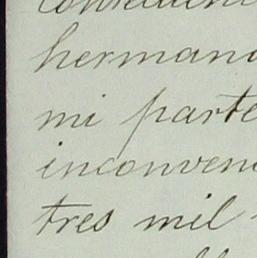 hermana
mi parte
inconveni
tres mil